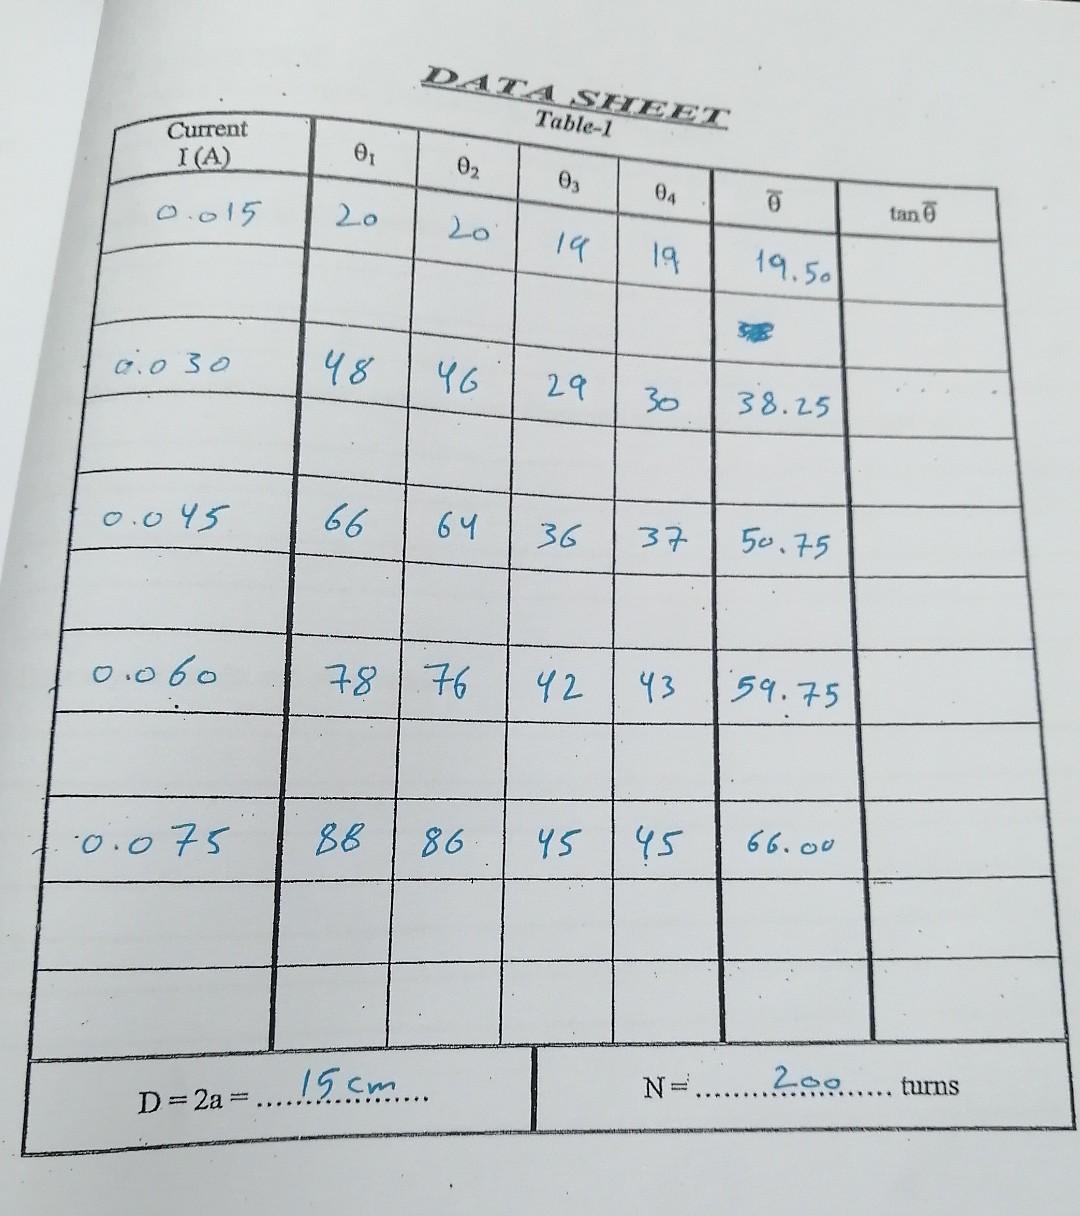 DATA SHEET
Table-1
Current I (A) θ₁ θ₂ θ₃ θ₄ θ̅ tan θ̅
0.015 20 20 19 19 19.50
0.030 48 46 29 30 38.25
0.045 66 64 36 37 50.75
0.060 78 76 42 43 59.75
0.075 88 86 45 45 66.00
D = 2a = ....15 cm.... N = ....200.... turns